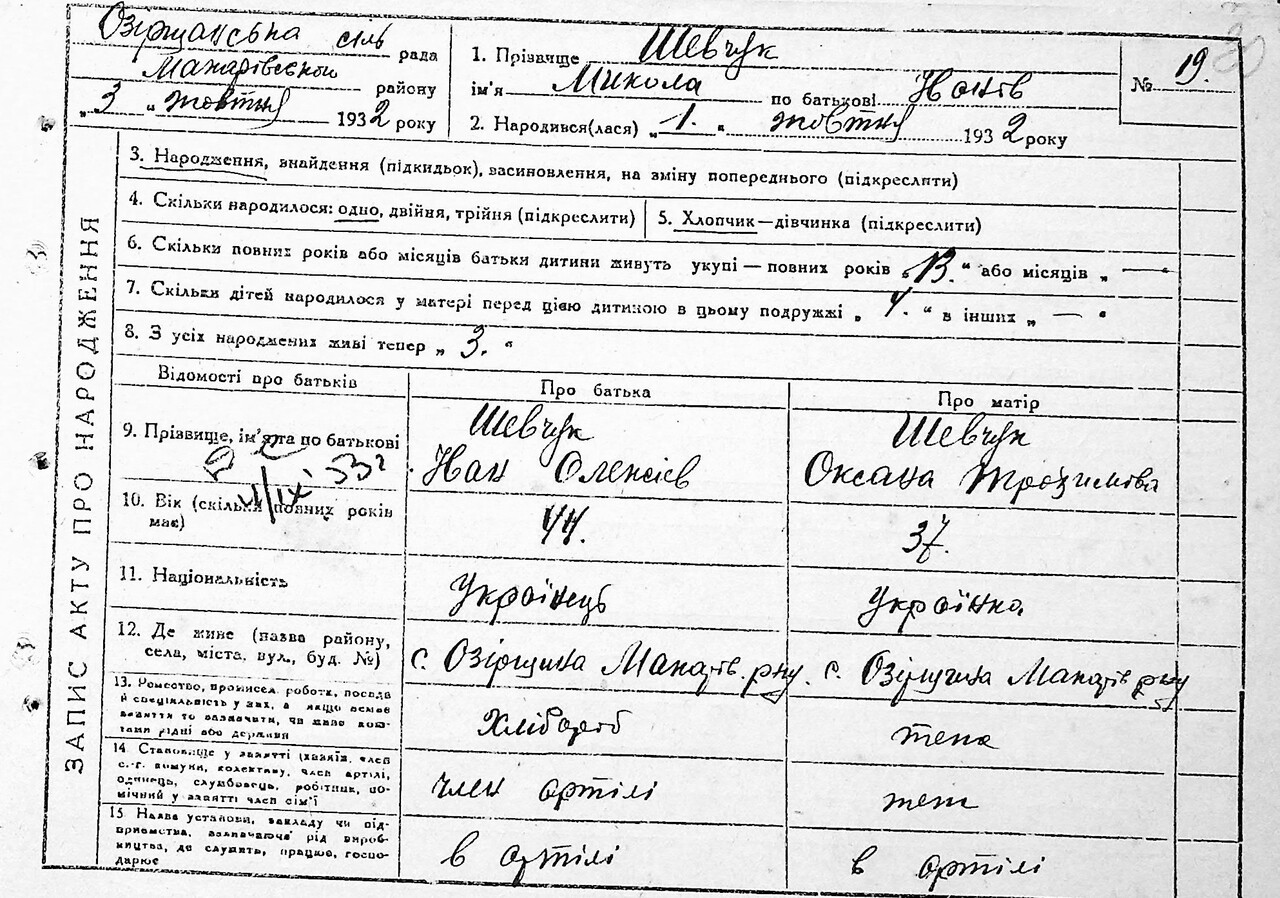 Озірщанська сіль рада
Макарівського району
„3„ жовтня 1932 року
1. Прізвище Шевчук
ім'я Микола по батькові Іванів
2. Народився(лася) „1.„ жовтня 1932 року
№ 19.
ЗАПИС АКТУ ПРО НАРОДЖЕННЯ
3. Народження, знайдення (підкидьок), васиновлення, на зміну попереднього (підкреслити)
4. Скільки народилося: одно, двійня, трійня (підкреслити)
5. Хлопчик—дівчинка (підкреслити)
6. Скільки повних років або місяців батьки дитини живуть укупі — повних років „13.“ або місяців „—“
7. Скільки дітей народилося у матері перед цією дитиною в цьому подружжі „4.“ в інших „—“
8. З усіх народжених живі тепер „3.“
Відомості про батьків
Про батька
Про матір
9. Прізвище, ім'я та по батькові
Шевчук
Іван Олексієв
Шевчук
Оксана Трохимова
10. Вік (скільки повних років має)
44.
37.
11. Національність
Українець
Українка
12. Де живе (назва району,
села, міста, вул., буд. №)
с. Озірщина Макарів. р-ну
с. Озірщина Макарів р-ну
13. Ремество, промисел, робота, посада
й спеціяльність у них, а якщо немає
заняття то зазначити, чи живе кош-
тами рідні або держави
Хлібороб
теж
14. Становище у занятті (хазяїн, член
с.-г. комуни, колективу, член артілі,
одинець, службовець, робітник, по-
мічний у занятті член сім'ї
член артілі
теж
15. Назва установи, закладу чи під-
приємства, зазначаючи рід вироб-
ництва, де служить, працює, госпо-
дарює
в артілі
в артілі